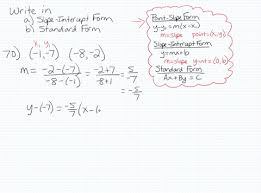 Write in
a) Slope-Intercept Form
b) Standard Form
x, y,
70) (-1,-7) (-8,-2)
m = -2-(-7) / -8-(-1) = -2+7 / -8+1 = 5/-7
= -5/7
y-(-7) = -5/7(x-(
Point-Slope Form
y-y₁=m(x-x₁)
m=slope point=(x,y)
Slope-Intercept Form
y=mx+b
m=slope y-int=(0,b)
Standard Form
Ax+By=C